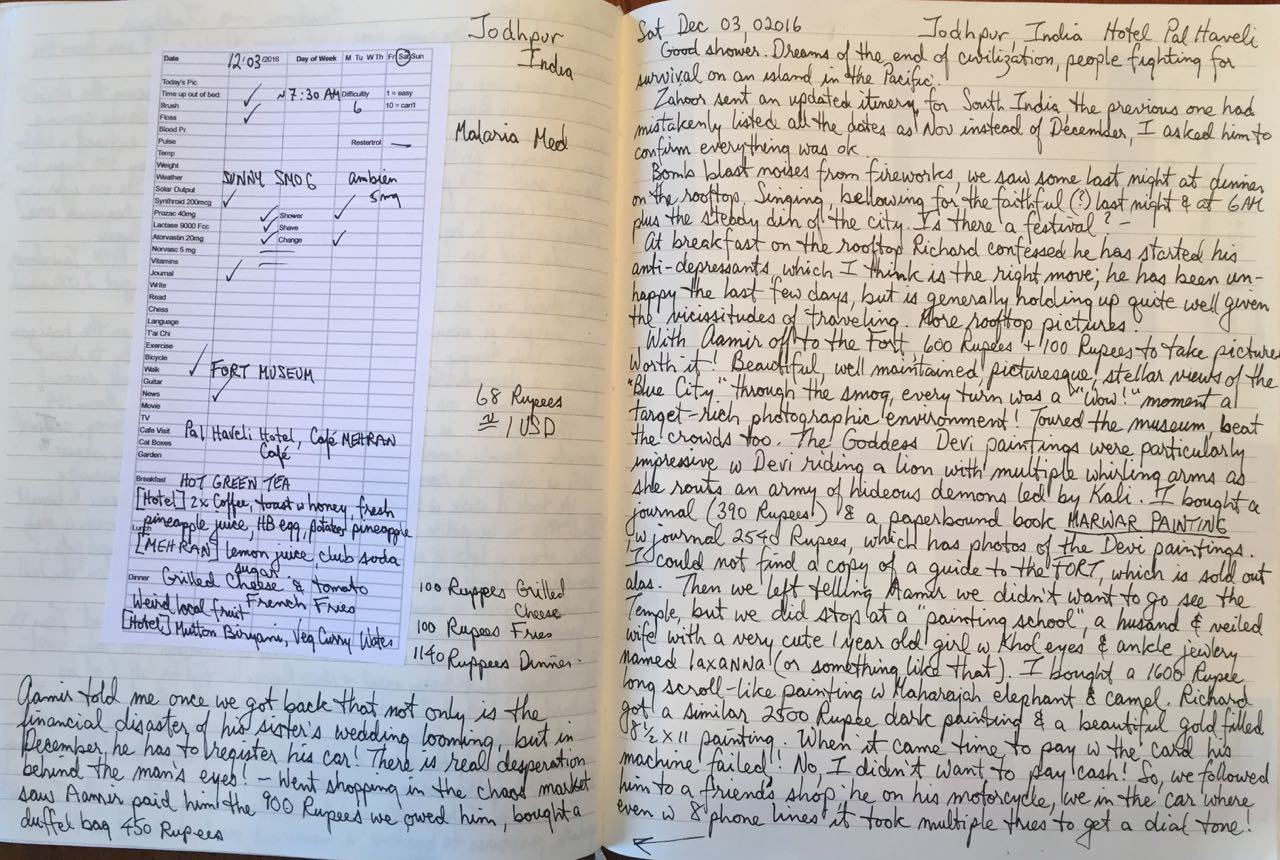 Jodhpur
India
Date 12·03/2016 Day of Week M Tu W Th Fr Sat Sun
Today's Pic
Time up out of bed: ~7:30 AM Difficulty 1 = easy
Brush 6 10 = can't
Floss
Blood Pr.
Pulse Restertrol —
Temp
Weight
Weather SUNNY SMOG ambien
Solar Output 5mg
Synthroid 200mcg
Prozac 40mg Shower
Lactase 9000 Fcc Shave
Atorvastin 20mg Change
Norvasc 5 mg
Vitamins
Journal
Write
Read
Chess
Language
T'ai Chi
Exercise
Bicycle
Walk FORT MUSEUM
Guitar
News
Movie
TV
Cafe Visit Pal Haveli Hotel, Café MEHRAN
Cat Boxes Café
Garden
Breakfast HOT GREEN TEA
[Hotel] 2x Coffee, toast w honey, fresh
pineapple juice, HB egg, potatoes, pineapple
Lunch
[MEHRAN] lemon juice, club soda
sugar
Dinner Grilled Cheese & tomato
Weird local fruit French Fries
[Hotel] Mutton Biryani, Veg Curry Water
Malaria Med
68 Rupees
≈ 1 USD
100 Ruppees Grilled
Cheese
100 Rupees Fries
1140 Ruppees Dinner.
Aamir told me once we got back that not only is the
financial disaster of his sister's wedding looming, but in
December, he has to register his car! There is real desperation
behind the man's eyes! — Went shopping in the chaos market
saw Aamir paid him the 900 Rupees we owed him, bought a
duffel bag 450 Rupees
Sat Dec 03, 02016 Jodhpur, India Hotel Pal Haveli
Good shower. Dreams of the end of civilization, people fighting for
survival on an island in the Pacific.
Zahoor sent an updated itinery for South India the previous one had
mistakenly listed all the dates as Nov instead of December, I asked him to
confirm everything was ok.
Bomb blast noises from fireworks, we saw some last night at dinner
on the rooftop. Singing, bellowing for the faithful (?) last night & at 6AM
plus the steady din of the city. Is there a festival? —
At breakfast on the rooftop Richard confessed he has started his
anti-depressants, which I think is the right move; he has been un-
happy the last few days, but is generally holding up quite well given
the vicissitudes of traveling. More rooftop pictures.
With Aamir off to the Fort 600 Rupees + 100 Rupees to take pictures
Worth it! Beautiful, well maintained, picturesque, stellar views of the
"Blue City" through the smog, every turn was a "Wow!" moment a
target-rich photographic environment! Toured the museum, beat
the crowds too. The Goddess Devi paintings were particularly
impressive w Devi riding a lion with multiple whirling arms as
she routs an army of hideous demons led by Kali. I bought a
journal (390 Rupees!) & a paperbound book MARWAR PAINTING
w journal 2540 Rupees, which has photos of the Devi paintings.
I could not find a copy of a guide to the FORT, which is sold out
alas. Then we left telling Aamir we didn't want to go see the
Temple, but we did stop at a "painting school", a husand & veiled
wife with a very cute 1 year old girl w Khol eyes & ankle jewlery
named laxanna (or something like that). I bought a 1600 Rupee
long scroll-like painting w Maharajah elephant & camel. Richard
got a similar 2500 Rupee dark painting & a beautiful gold filled
8½ x 11 painting. When it came time to pay w the card his
machine failed! No, I didn't want to pay cash! So, we followed
him to a friend's shop he on his motorcycle, we in the car where
even w 8 phone lines it took multiple tries to get a dial tone!